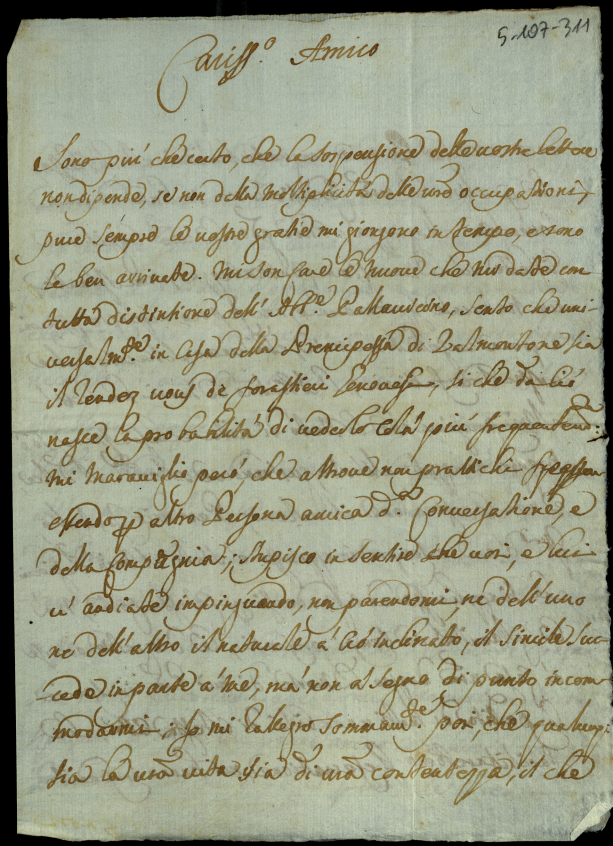 5-107-311
Cariss.º Amico
Sono piú che certo, che la sospensione delle vostre lettere
non dipende, se non dalla moltiplicitá delle vre occupationi,
pure sempre le vostre gratie mi giongono in tempo, e sono
le ben arrivate. Mi son care le nuove che mi date con
tutta distintione dell' Ab.e Pallavicino, sento che uni-
versalm.te in Casa della Prencipessa di Valmontone sia
il Rendez vous de forastieri Genovesi, si che da ció
nasce la probabilitá di vederlo colá piú frequentem.
mi maraviglio peró che altrove non prattichi spesso
essendo altro Persona amica d. Conversatione, e
della Compagnia; stupisco in sentire che voi, e lui
v' andiate impinguando, non parendomi ne dell' uno
ne dell' altro il naturale á ció inclinato, il simile suc-
cede in parte á me, má non al segno di punto incom-
modarmi, mi rallegro sommam.te poi, che qualunq;
sia la vra vita sia di vra contentezza, il che